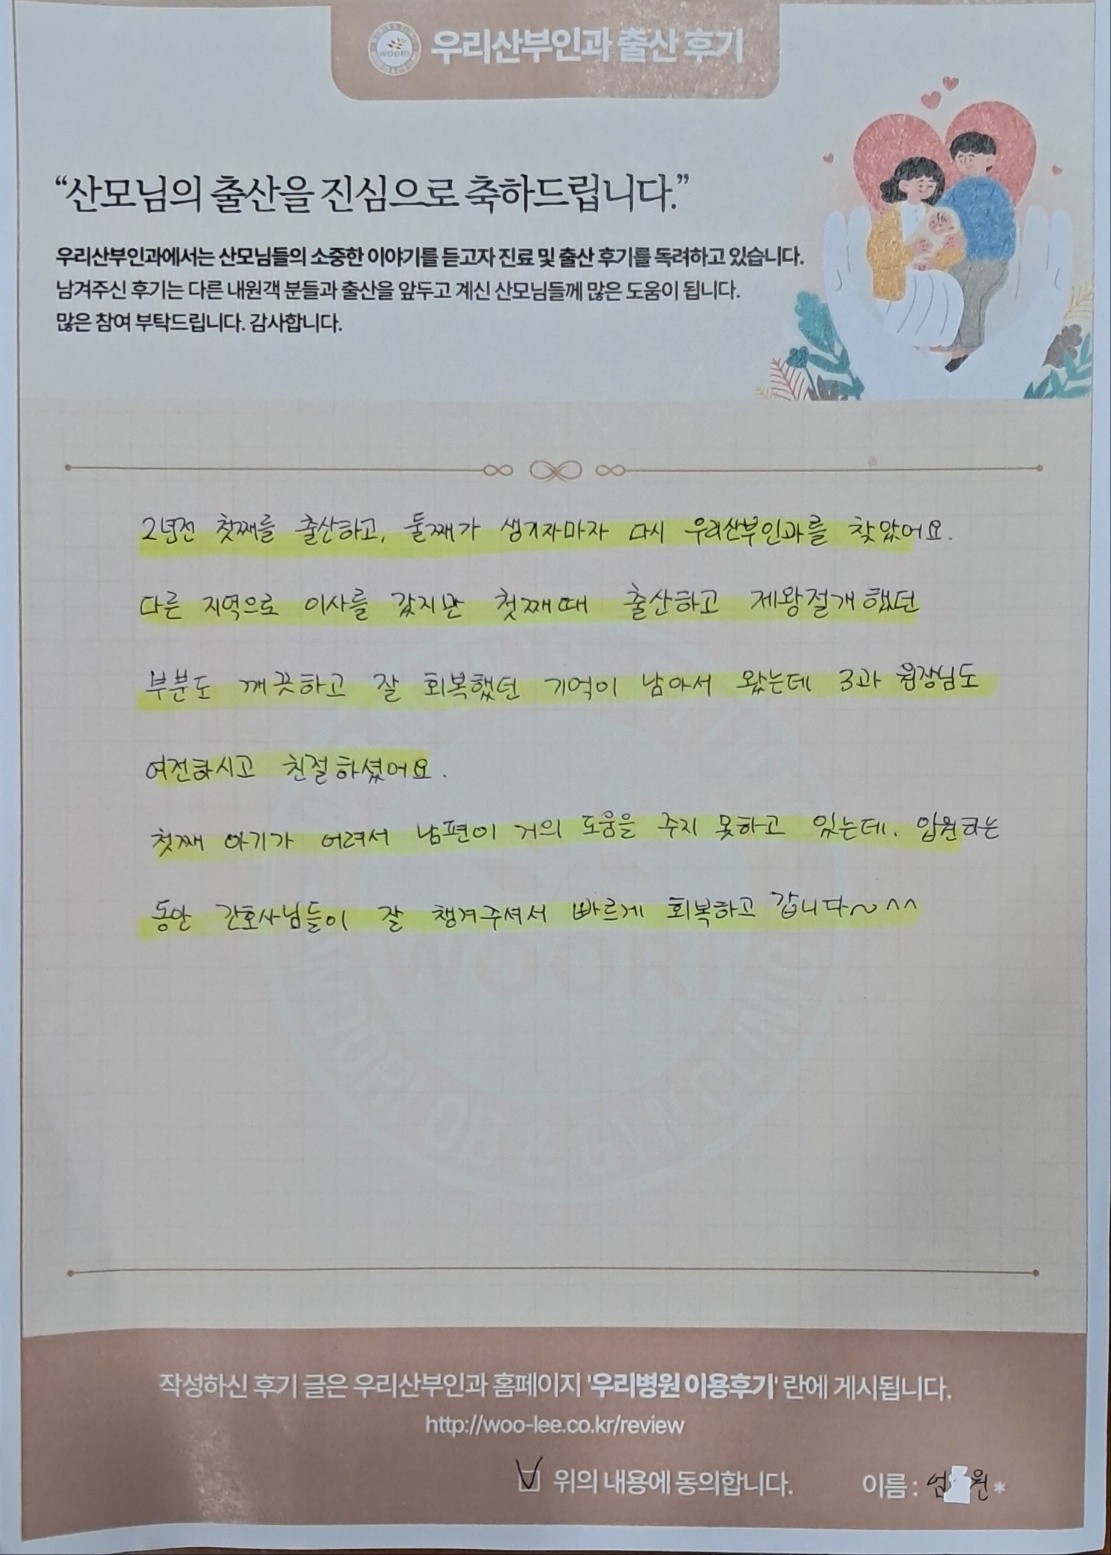 우리산부인과 출산 후기
“산모님의 출산을 진심으로 축하드립니다.”
우리산부인과에서는 산모님들의 소중한 이야기를 듣고자 진료 및 출산 후기를 독려하고 있습니다.
남겨주신 후기는 다른 내원객 분들과 출산을 앞두고 계신 산모님들께 많은 도움이 됩니다.
많은 참여 부탁드립니다. 감사합니다.
2년전 첫째를 출산하고, 둘째가 생기자마자 다시 우리산부인과를 찾았어요.
다른 지역으로 이사를 갔지만 첫째때 출산하고 제왕절개 했던
부분도 깨끗하고 잘 회복했던 기억이 남아서 왔는데 3과 원장님도
여전하시고 친절하셨어요.
첫째 아기가 어려서 남편이 거의 도움을 주지 못하고 있는데. 입원하는
동안 간호사님들이 잘 챙겨주셔서 빠르게 회복하고 갑니다~^^
WOORI
WOORI OB & GYN CLINIC
작성하신 후기 글은 우리산부인과 홈페이지 '우리병원 이용후기' 란에 게시됩니다.
http://woo-lee.co.kr/review
위의 내용에 동의합니다. 이름 : 엄 원*